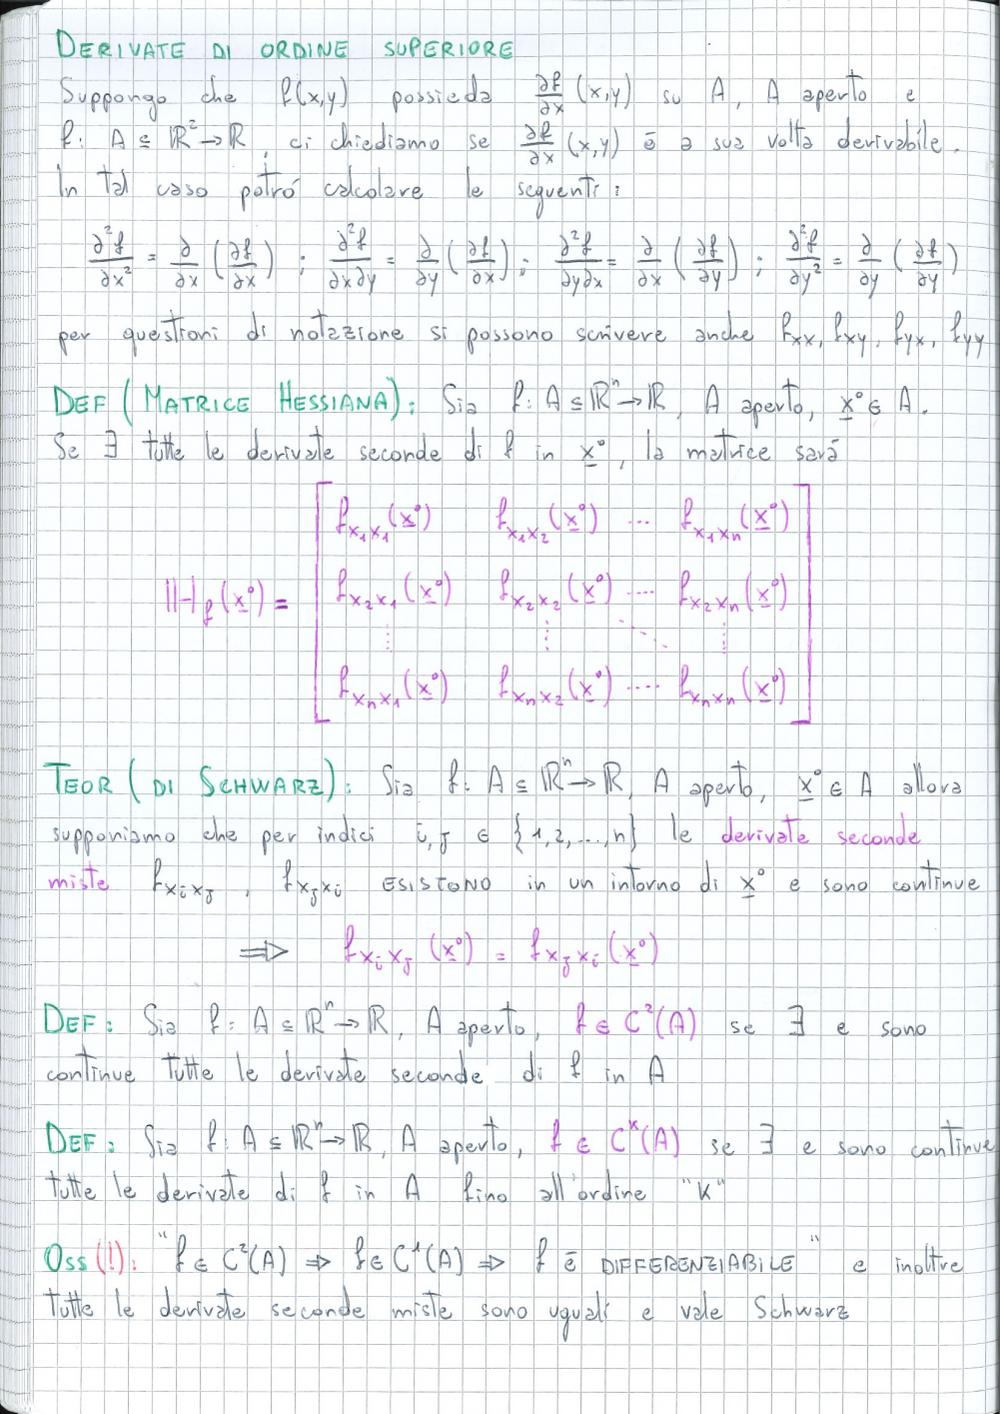 DERIVATE DI ORDINE SUPERIORE
Suppongo che f(x,y) possieda ∂f/∂x (x,y) su A, A aperto e
f: A ⊆ ℝ² → ℝ, ci chiediamo se ∂f/∂x (x,y) è a sua volta derivabile.
In tal caso potrò calcolare le seguenti:
∂²f/∂x² = ∂/∂x (∂f/∂x) ; ∂²f/∂x∂y = ∂/∂y (∂f/∂x) ; ∂²f/∂y∂x = ∂/∂x (∂f/∂y) ; ∂²f/∂y² = ∂/∂y (∂f/∂y)
per questioni di notazione si possono scrivere anche fxx, fxy, fyx, fyy
DEF (MATRICE HESSIANA): Sia f: A ⊆ ℝⁿ → ℝ, A aperto, x° ∈ A.
Se ∃ tutte le derivate seconde di f in x°, la matrice sarà
f_x₁x₁(x°) f_x₁x₂(x°) ... f_x₁xₙ(x°)
ℍ_f(x°) = f_x₂x₁(x°) f_x₂x₂(x°) .... f_x₂xₙ(x°)
⋮ ⋮ ⋱ ⋮
f_xₙx₁(x°) f_xₙx₂(x°) .... f_xₙxₙ(x°)
TEOR (DI SCHWARZ): Sia f: A ⊆ ℝⁿ → ℝ, A aperto, x° ∈ A allora
supponiamo che per indici i,j ∈ {1,2,...,n} le derivate seconde
miste f_xᵢxⱼ, f_xⱼxᵢ ESISTONO in un intorno di x° e sono continue
⇒ f_xᵢxⱼ(x°) = f_xⱼxᵢ(x°)
DEF: Sia f: A ⊆ ℝⁿ → ℝ, A aperto, f ∈ C²(A) se ∃ e sono
continue tutte le derivate seconde di f in A
DEF: Sia f: A ⊆ ℝⁿ → ℝ, A aperto, f ∈ Cᴷ(A) se ∃ e sono continue
tutte le derivate di f in A fino all'ordine "K"
OSS(!): "f ∈ C²(A) ⇒ f ∈ C¹(A) ⇒ f è DIFFERENZIABILE" e inoltre
tutte le derivate seconde miste sono uguali e vale Schwarz